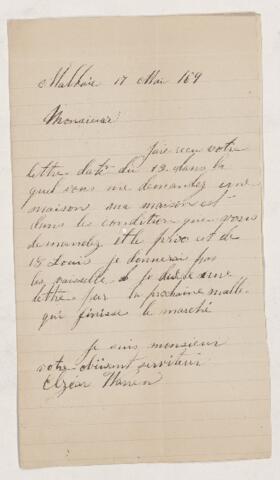 Malbaie 17 Mai 189
Monsieur
jaie recu votre
lettre daté du 12 dans la
quel vous me demandez une
maison ma maison est
dans les condition que vous
demandez et le prix est de
18 Louis je donnerai pas
la vaisselle je desire une
lettre par la prochaine malle
qui finisse le marché
je suis monsieur
votre obéisent serviteur
Elzéar Warren